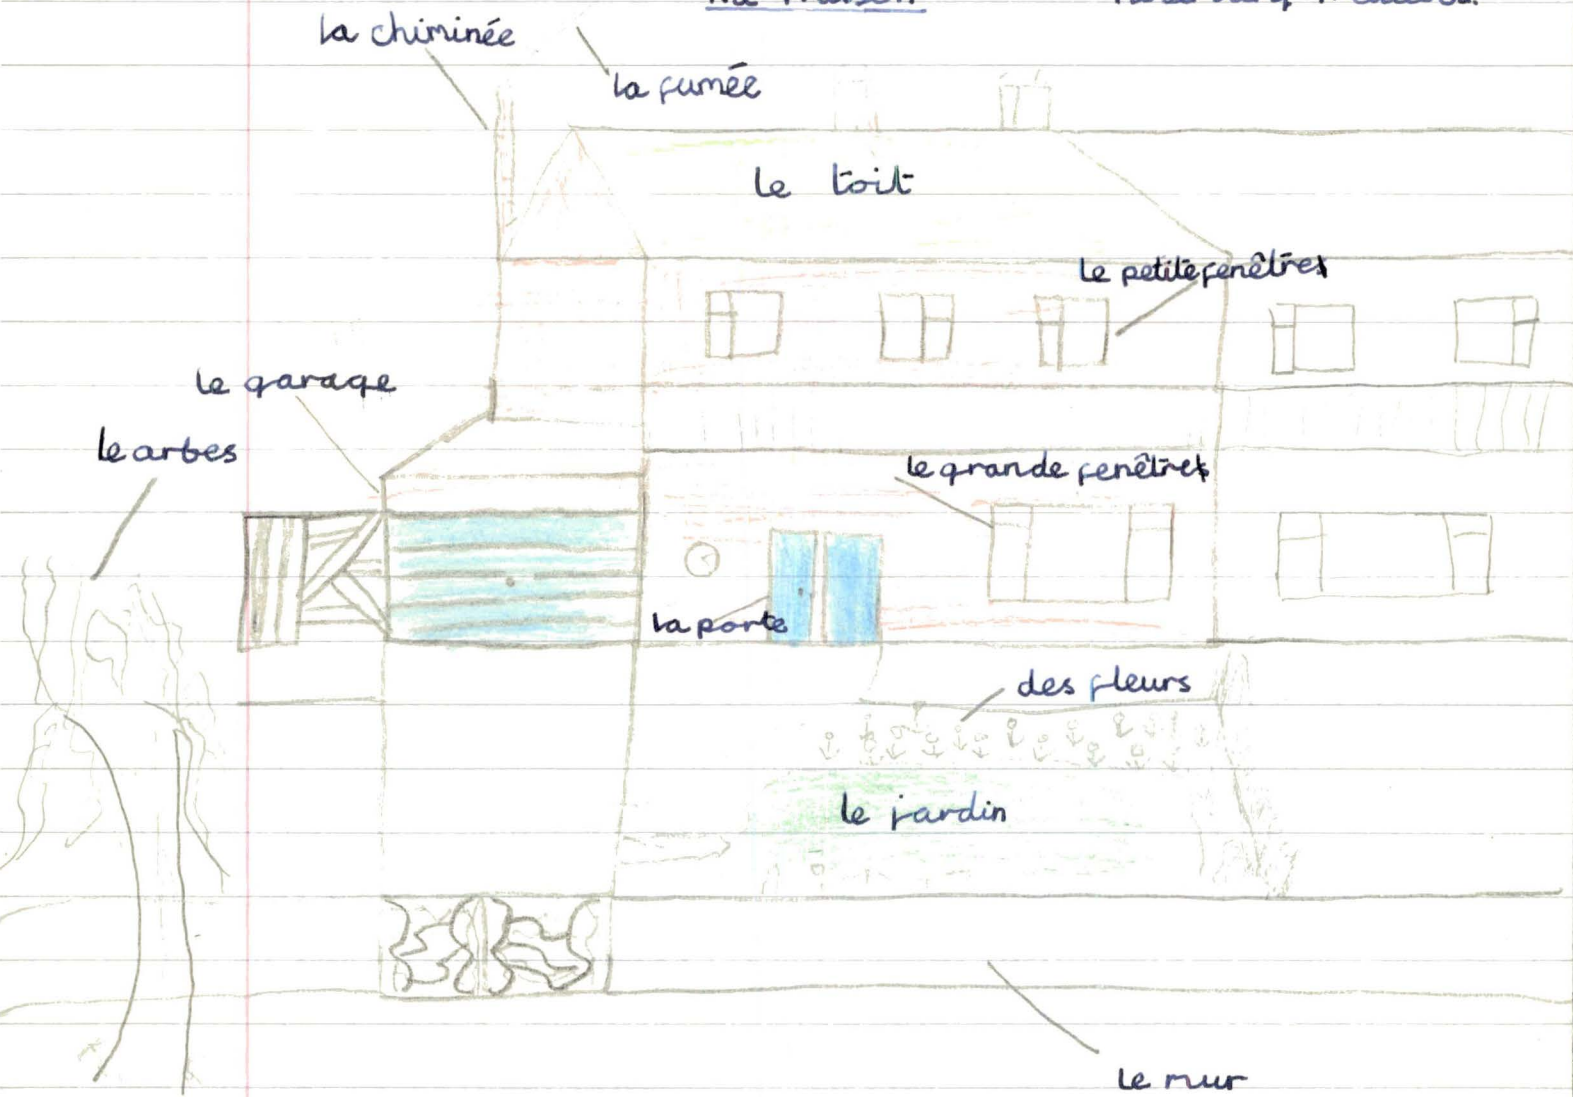 Ma Maison
la chiminée
la fumée
le toit
le petite fenêtres
le garage
le arbes
le grande fenêtres
la porte
des fleurs
le jardin
le mur